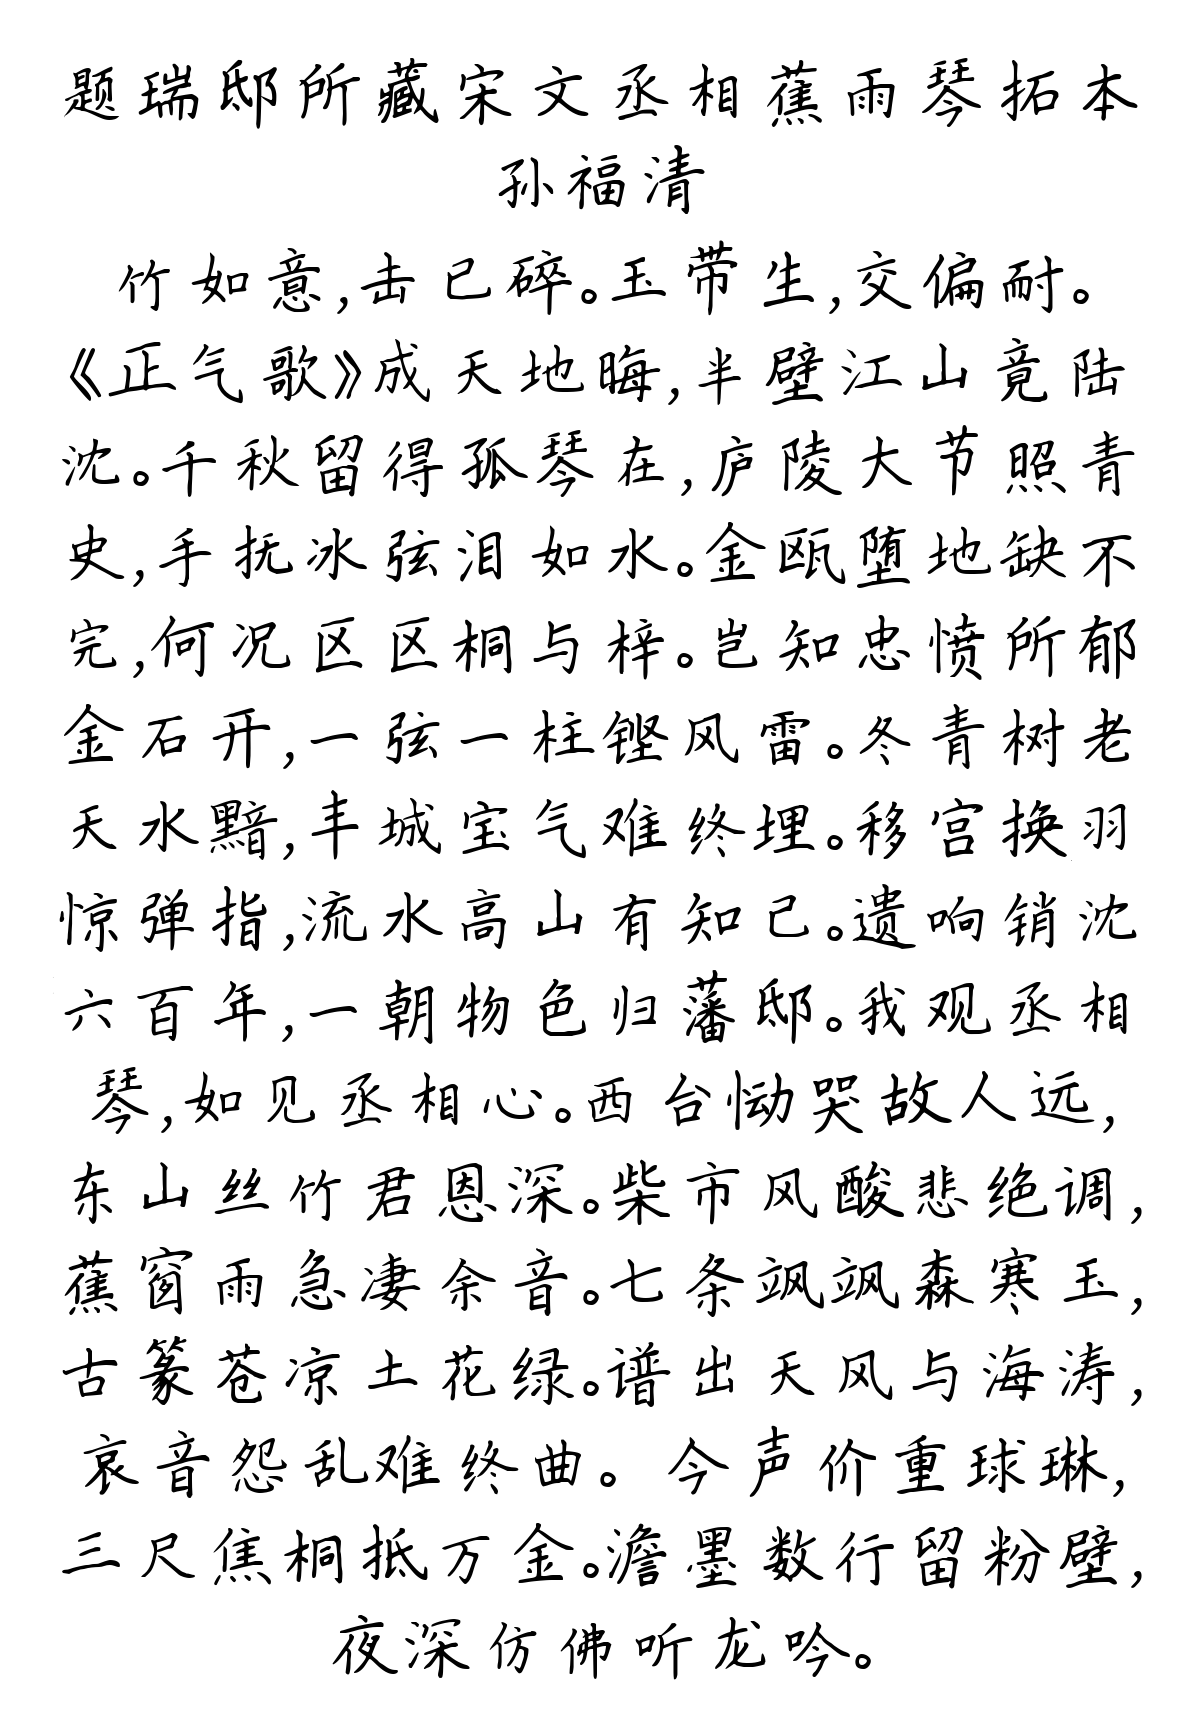 题瑞邸所藏宋文丞相蕉雨琴拓本
孙福清
竹如意,击已碎。玉带生,交偏耐。
《正气歌》成天地晦,半壁江山竟陆
沈。千秋留得孤琴在,庐陵大节照青
史,手抚冰弦泪如水。金瓯堕地缺不
完,何况区区桐与梓。岂知忠愤所郁
金石开,一弦一柱铿风雷。冬青树老
天水黯,丰城宝气难终埋。移宫换羽
惊弹指,流水高山有知己。遗响销沈
六百年,一朝物色归藩邸。我观丞相
琴,如见丞相心。西台恸哭故人远,
东山丝竹君恩深。柴市风酸悲绝调,
蕉窗雨急凄余音。七条飒飒森寒玉,
古篆苍凉土花绿。谱出天风与海涛,
哀音怨乱难终曲。今声价重球琳,
三尺焦桐抵万金。澹墨数行留粉壁,
夜深仿佛听龙吟。